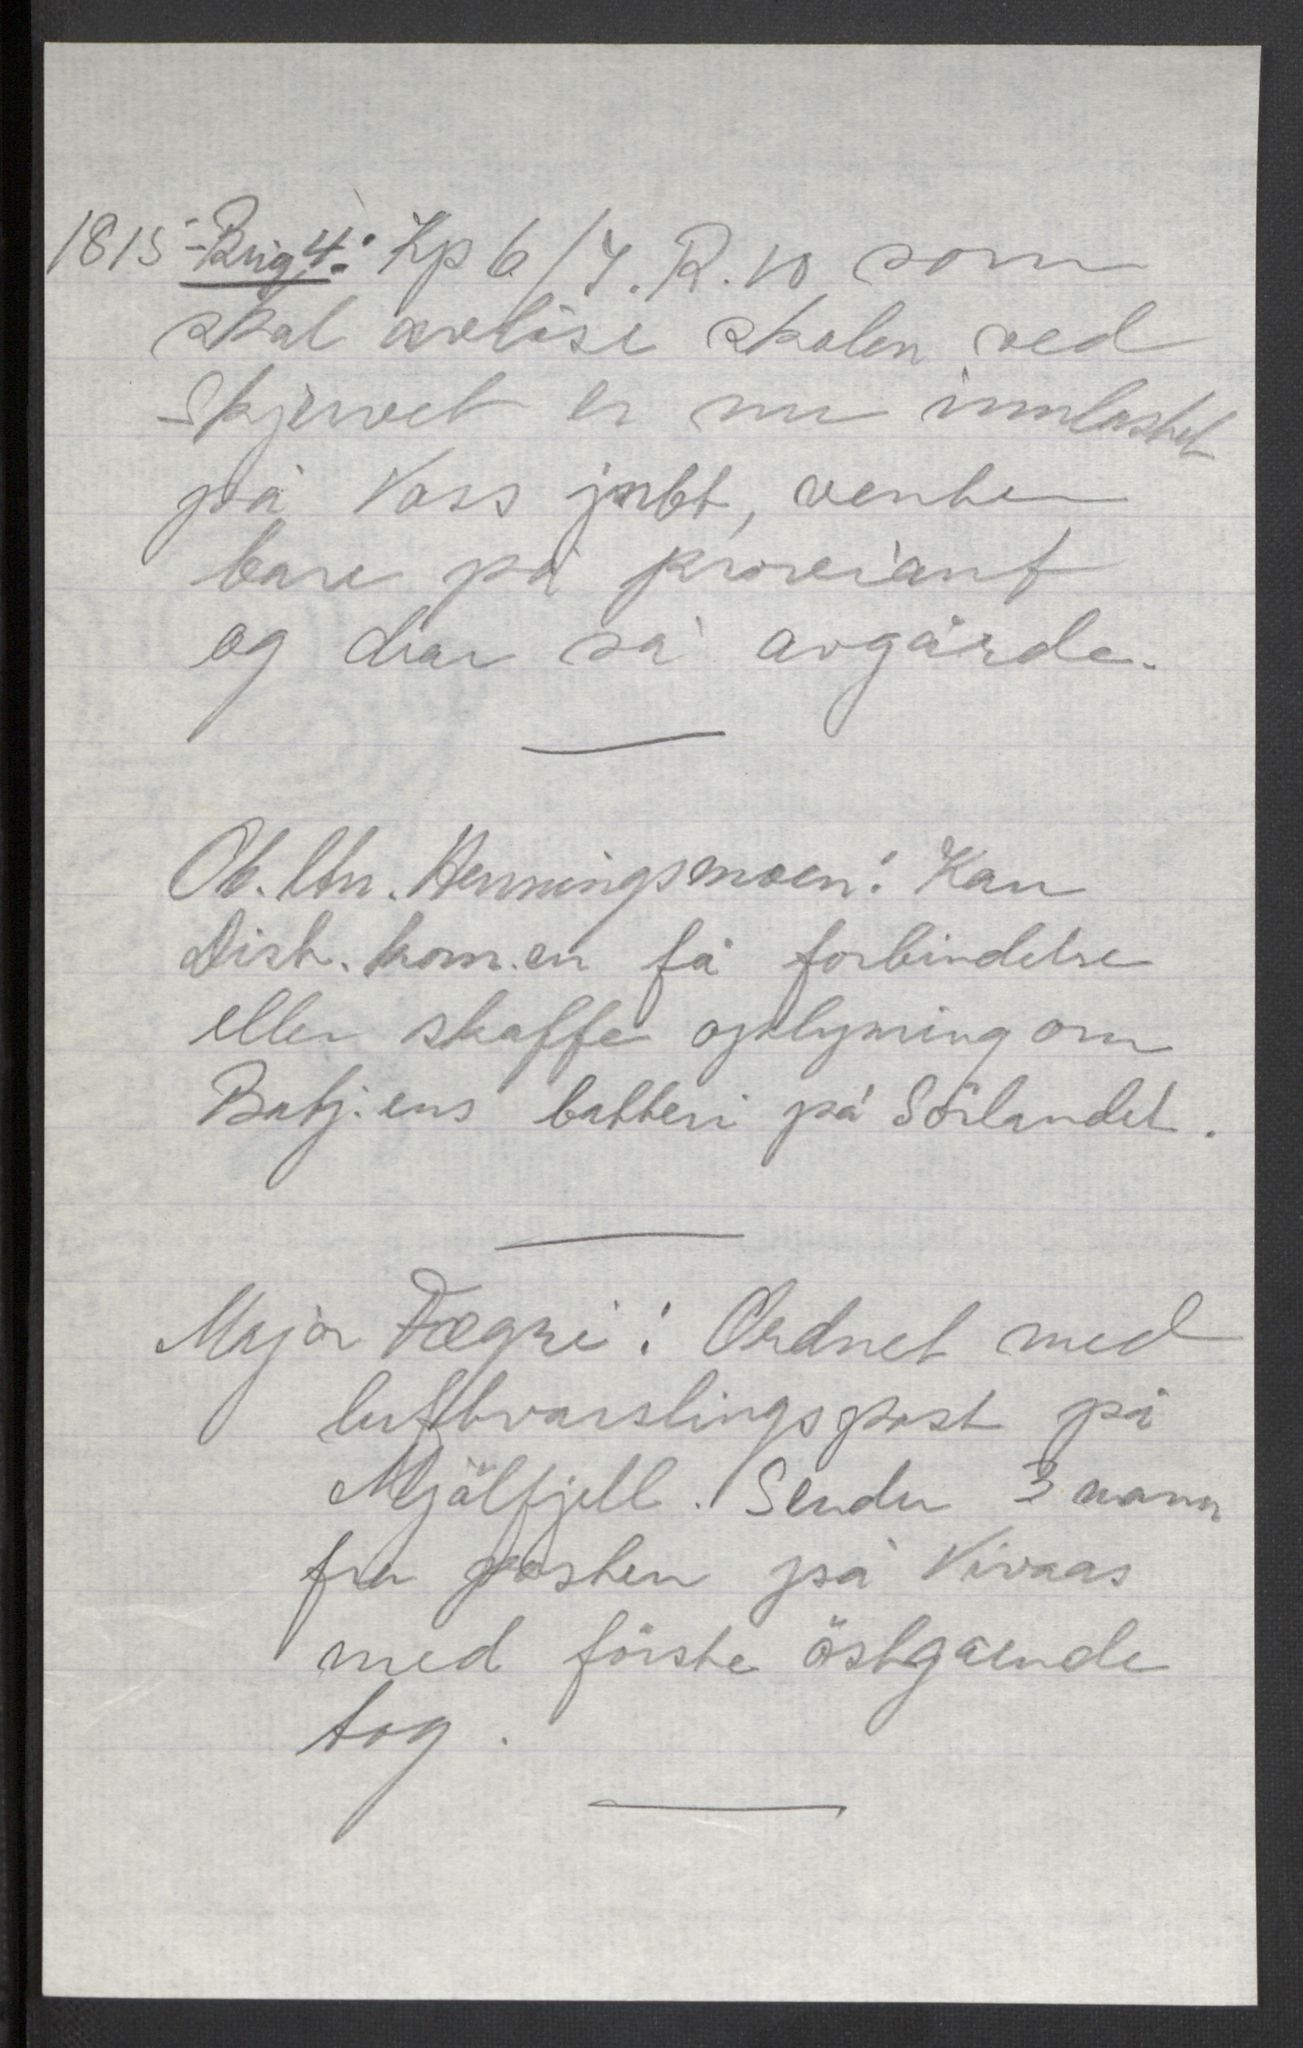 1815 - Brig 4: Kp 6/I.R.10 som
skal avløse skolen ved
Skjervet er nu innlastet
på Voss jnbt, venter
bare på proviant
og drar så avgårde.
Ob.ltn. Henningsmoen: Kan
Distr. kom.en få forbindelse
eller skaffe oplysning om
Batj.ens batteri på Sörlandet.
Major Fægri: Ordnet med
luftvarslingspost på
Mjölfjell. Sender 3 mann
fra posten på Vivaas
med förste östgaende
tog.